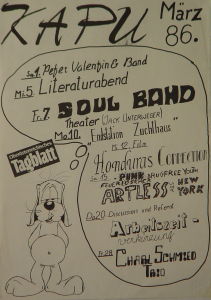 KAPU März
86.
Sa1. Peter Valentin & Band
Mi5. Literaturabend
Fr.7. SOUL BAND
Theater (Jack Unterweger)
Mo10. "Endstation Zuchthaus"
Mi. 12. Film
Honduras Connection
Sa 15. PUNK
ARTLESS
NEW
YORK
Do20. Discussion und Referat
Arbeitszeit-
verkürzung
Fr.28 CHARL SCHMIED
TRIO
Oberösterreichisches
Tagblatt